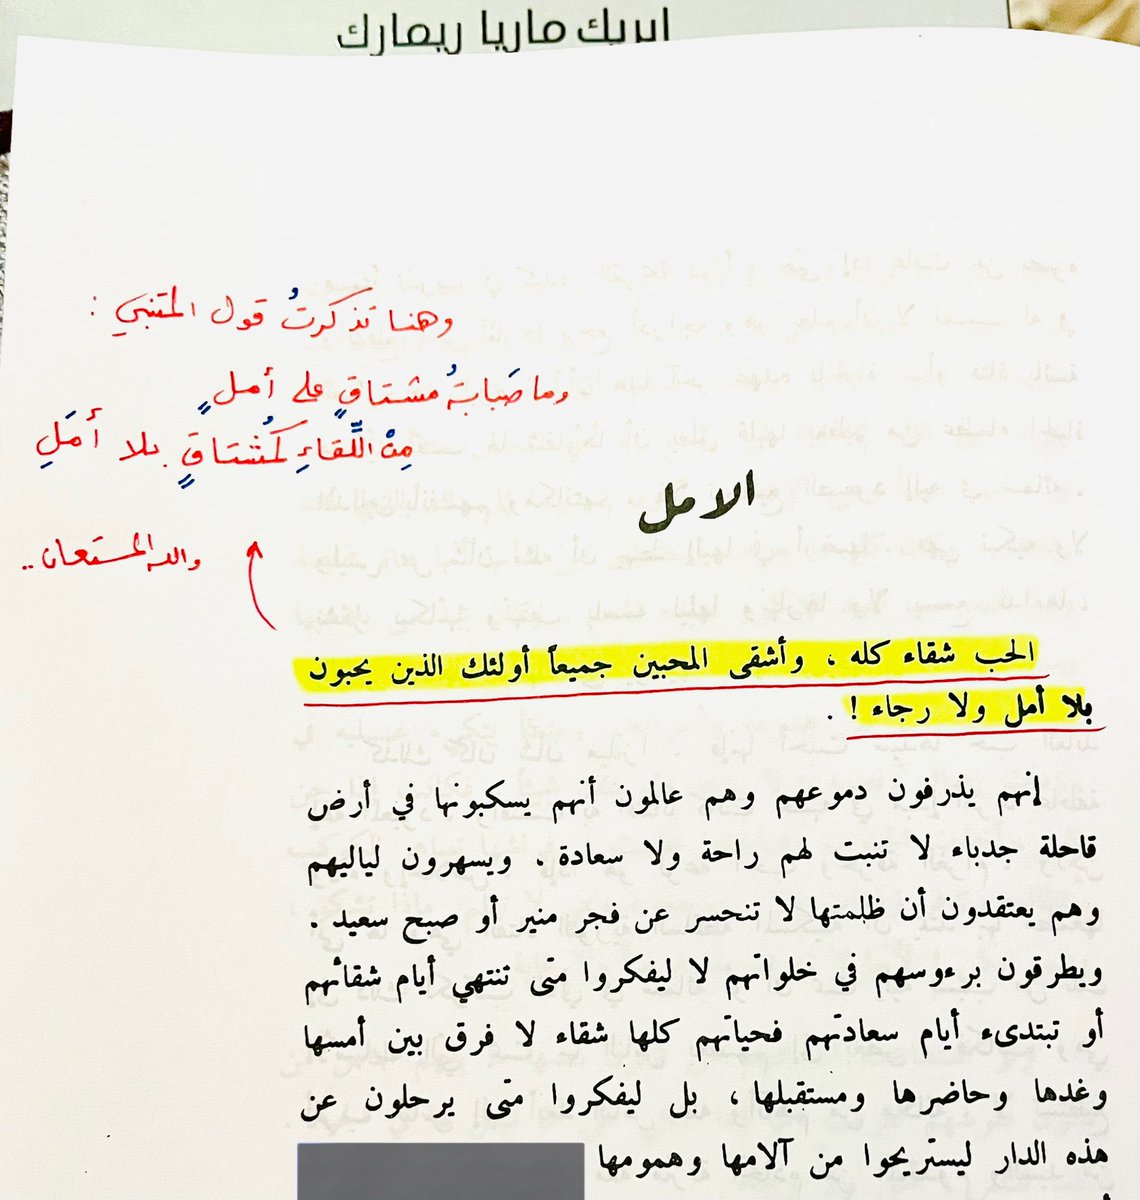 ايريك ماريا ريمارك
وهنا تذكرتُ قول المتنبي :
وما صَبابةُ مشتاقٍ على أملٍ
مِنْ اللِّقاءِ كمُشتاقٍ بلا أمَلِ
والله المستعان ..
الامل
الحب شقاء كله ، وأشقى المحبين جميعاً أولئك الذين يحبون
بلا أمل ولا رجاء ! .
إنهم يذرفون دموعهم وهم عالمون أنهم يسكبونها في أرض
قاحلة جدباء لا تنبت لهم راحة ولا سعادة . ويسهرون لياليهم
وهم يعتقدون أن ظلمتها لا تنحسر عن فجر منير أو صبح سعيد .
ويطرقون برءوسهم في خلواتهم لا ليفكروا متى تنتهي أيام شقائهم
أو تبتدىء أيام سعادتهم فحياتهم كلها شقاء لا فرق بين أمسها
وغدها وحاضرها ومستقبلها ، بل ليفكروا متى يرحلون عن
هذه الدار ليستريحوا من آلامها وهمومها